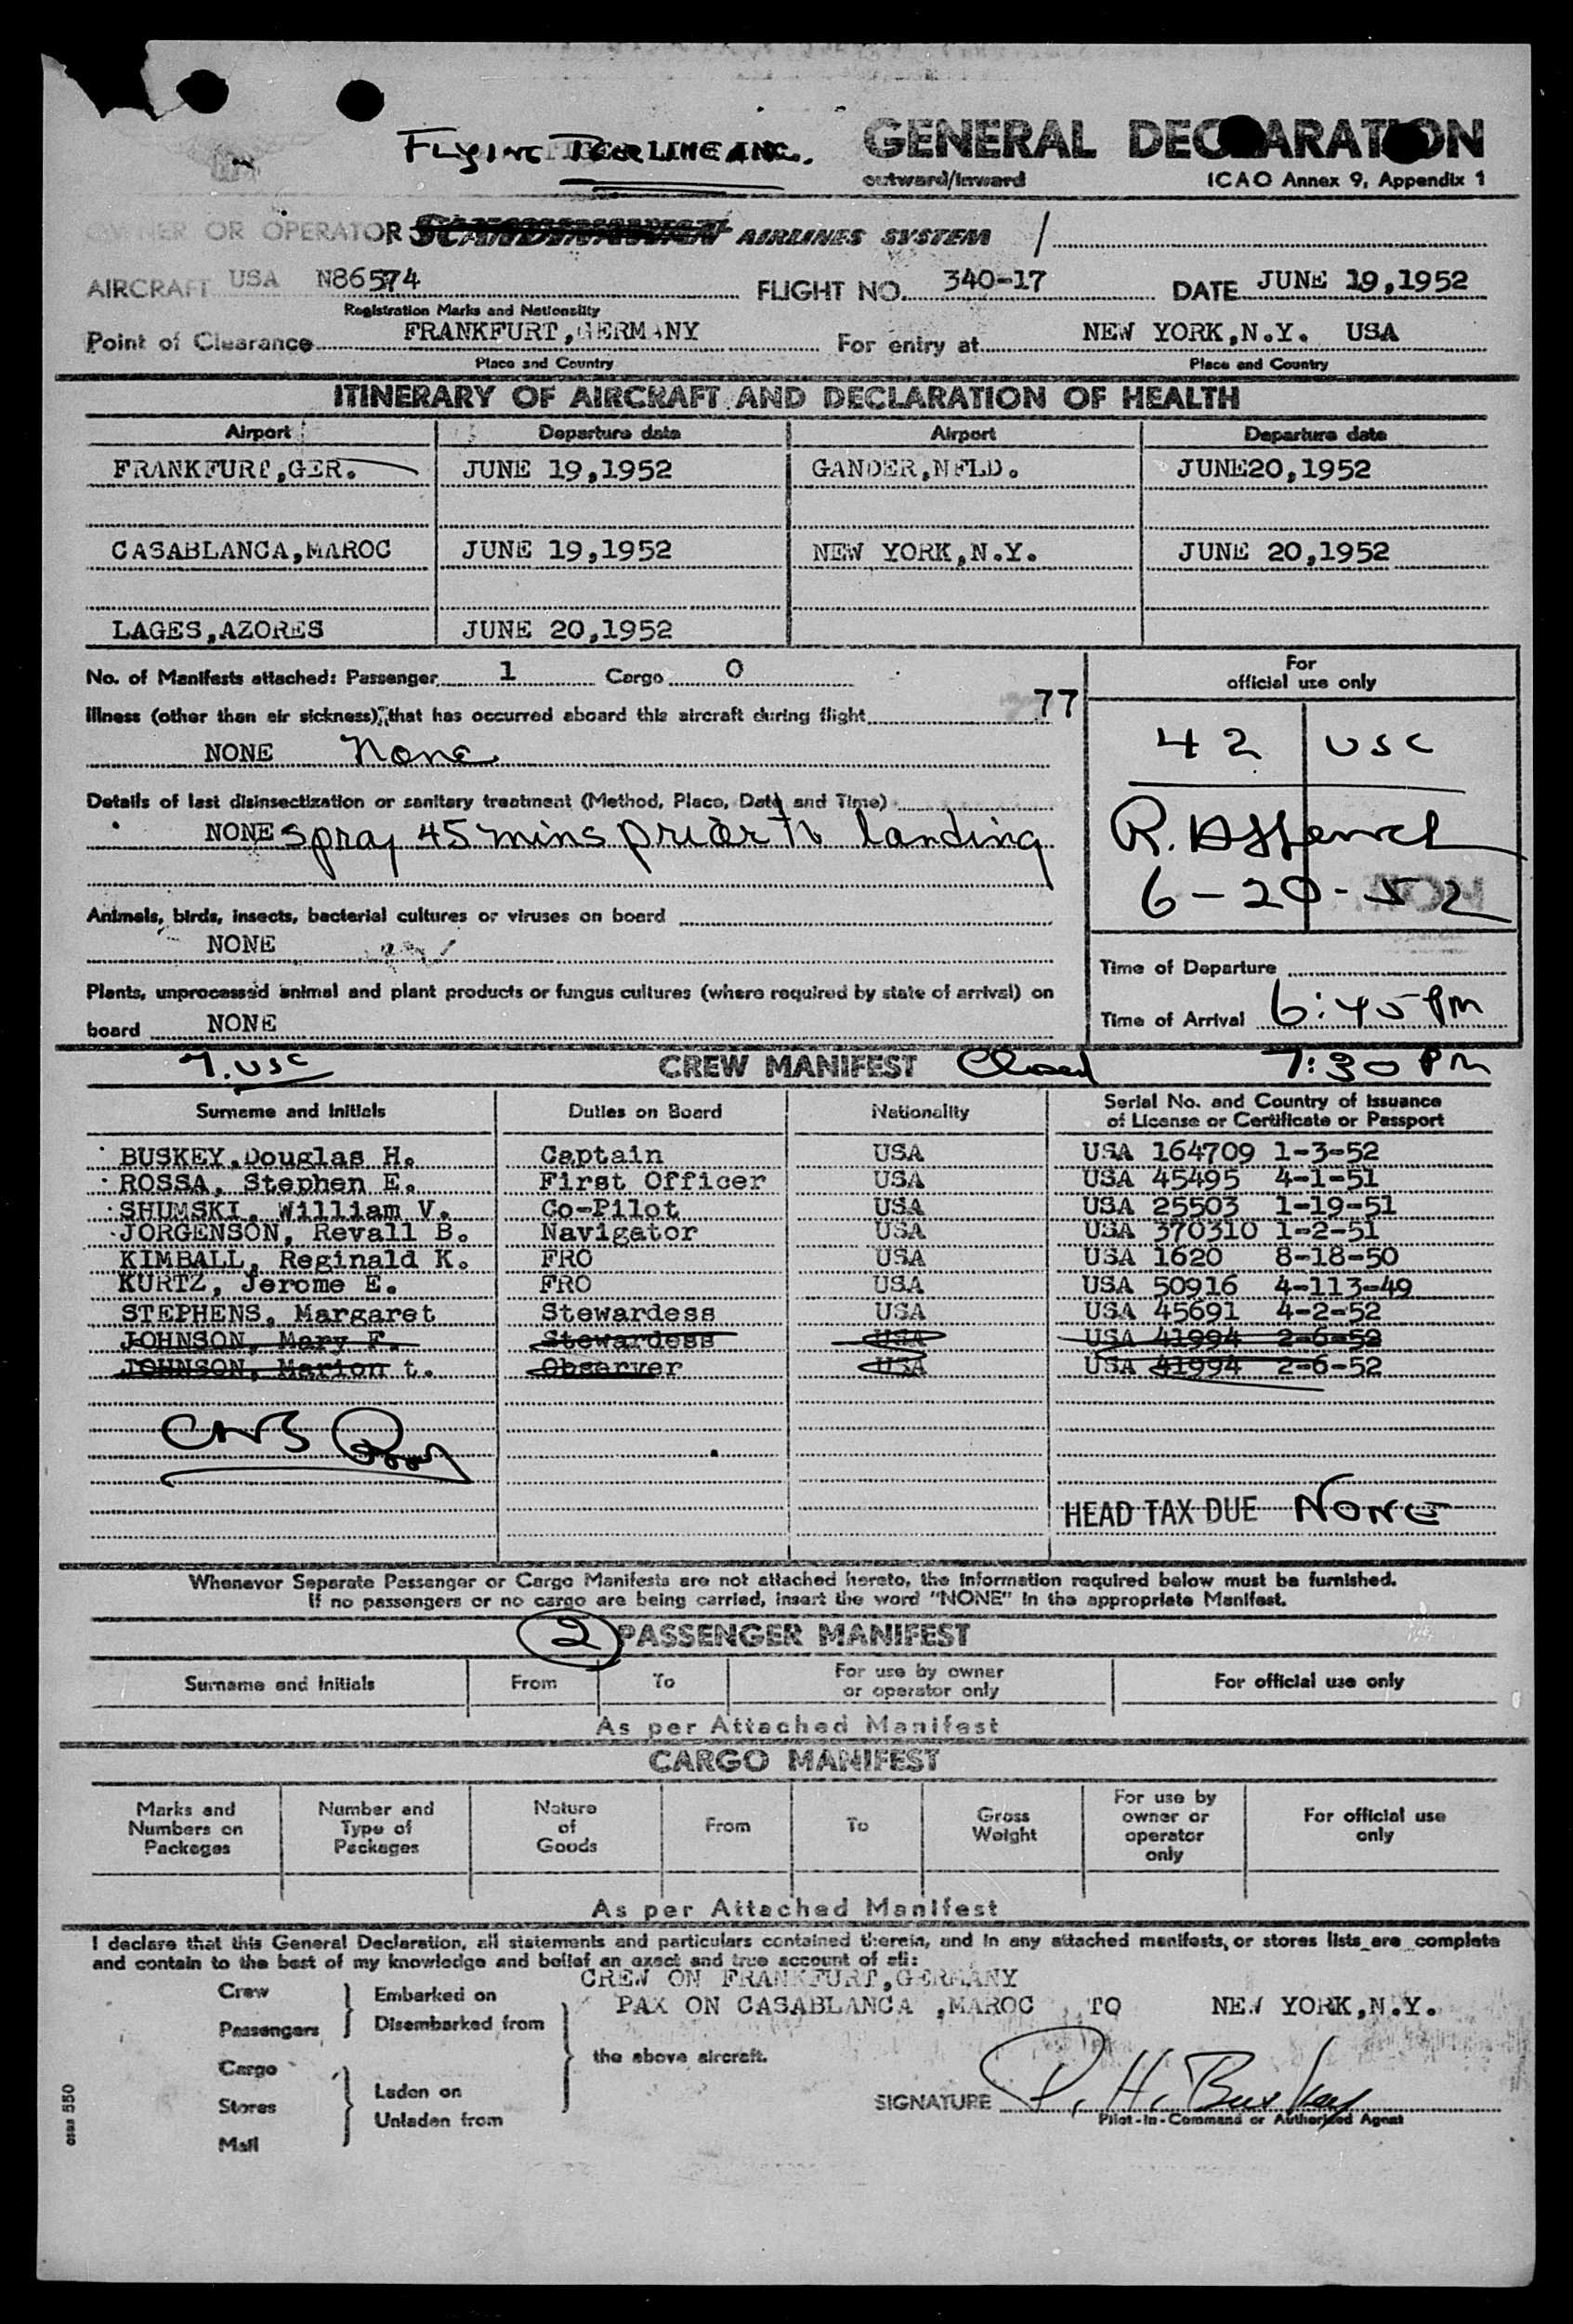 FLYING TIGER LINE INC.
GENERAL DECLARATION
outward/inward
ICAO Annex 9, Appendix 1
OWNER OR OPERATOR SCANDINAVIAN AIRLINES SYSTEM /
AIRCRAFT USA N86574 FLIGHT NO. 340-17 DATE JUNE 19,1952
Registration Marks and Nationality
Point of Clearance FRANKFURT,GERMANY For entry at NEW YORK,N.Y. USA
Place and Country Place and Country
ITINERARY OF AIRCRAFT AND DECLARATION OF HEALTH
Airport Departure date Airport Departure date
FRANKFURT,GER. JUNE 19,1952 GANDER,NFLD. JUNE20,1952
CASABLANCA,MAROC JUNE 19,1952 NEW YORK,N.Y. JUNE 20,1952
LAGES,AZORES JUNE 20,1952
No. of Manifests attached: Passenger 1 Cargo 0
For
official use only
Illness (other than air sickness), that has occurred aboard this aircraft during flight 77
NONE None
42 USC
Details of last disinsectization or sanitary treatment (Method, Place, Date and Time)
NONE Spray 45 mins prior to landing
R.
6-20-52
Animals, birds, insects, bacterial cultures or viruses on board
NONE
Time of Departure
Plants, unprocessed animal and plant products or fungus cultures (where required by state of arrival) on
board NONE
Time of Arrival 6:45 PM
7. USC CREW MANIFEST Closed 7:30 PM
Surname and Initials Duties on Board Nationality Serial No. and Country of Issuance
of License or Certificate or Passport
BUSKEY,Douglas H. Captain USA USA 164709 1-3-52
ROSSA, Stephen E. First Officer USA USA 45495 4-1-51
SHUMSKI, William V. Co-Pilot USA USA 25503 1-19-51
JORGENSON, Revall B. Navigator USA USA 370310 1-2-51
KIMBALL, Reginald K. FRO USA USA 1620 8-18-50
KURTZ, Jerome E. FRO USA USA 50916 4-113-49
STEPHENS, Margaret Stewardess USA USA 45691 4-2-52
JOHNSON, Mary F. Stewardess USA USA 41994 2-6-52
JOHNSON, Marion t. Observer USA USA 41994 2-6-52
HEAD TAX DUE NONE
Whenever Separate Passenger or Cargo Manifests are not attached hereto, the information required below must be furnished.
If no passengers or no cargo are being carried, insert the word "NONE" in the appropriate Manifest.
2 PASSENGER MANIFEST
Surname and Initials From To For use by owner
or operator only For official use only
As per Attached Manifest
CARGO MANIFEST
Marks and
Numbers on
Packages Number and
Type of
Packages Nature
of
Goods From To Gross
Weight For use by
owner or
operator
only For official use
only
As per Attached Manifest
I declare that this General Declaration, all statements and particulars contained therein, and in any attached manifests, or stores lists are complete
and contain to the best of my knowledge and belief an exact and true account of all:
CREW ON FRANKFURT,GERMANY
Crew Embarked on
PAX ON CASABLANCA ,MAROC TO NEW YORK,N.Y.
Passengers Disembarked from
the above aircraft.
Cargo
Laden on
Stores
Unladen from
Mail
SIGNATURE D. H. Buskey
Pilot-in-Command or Authorized Agent
osas 550